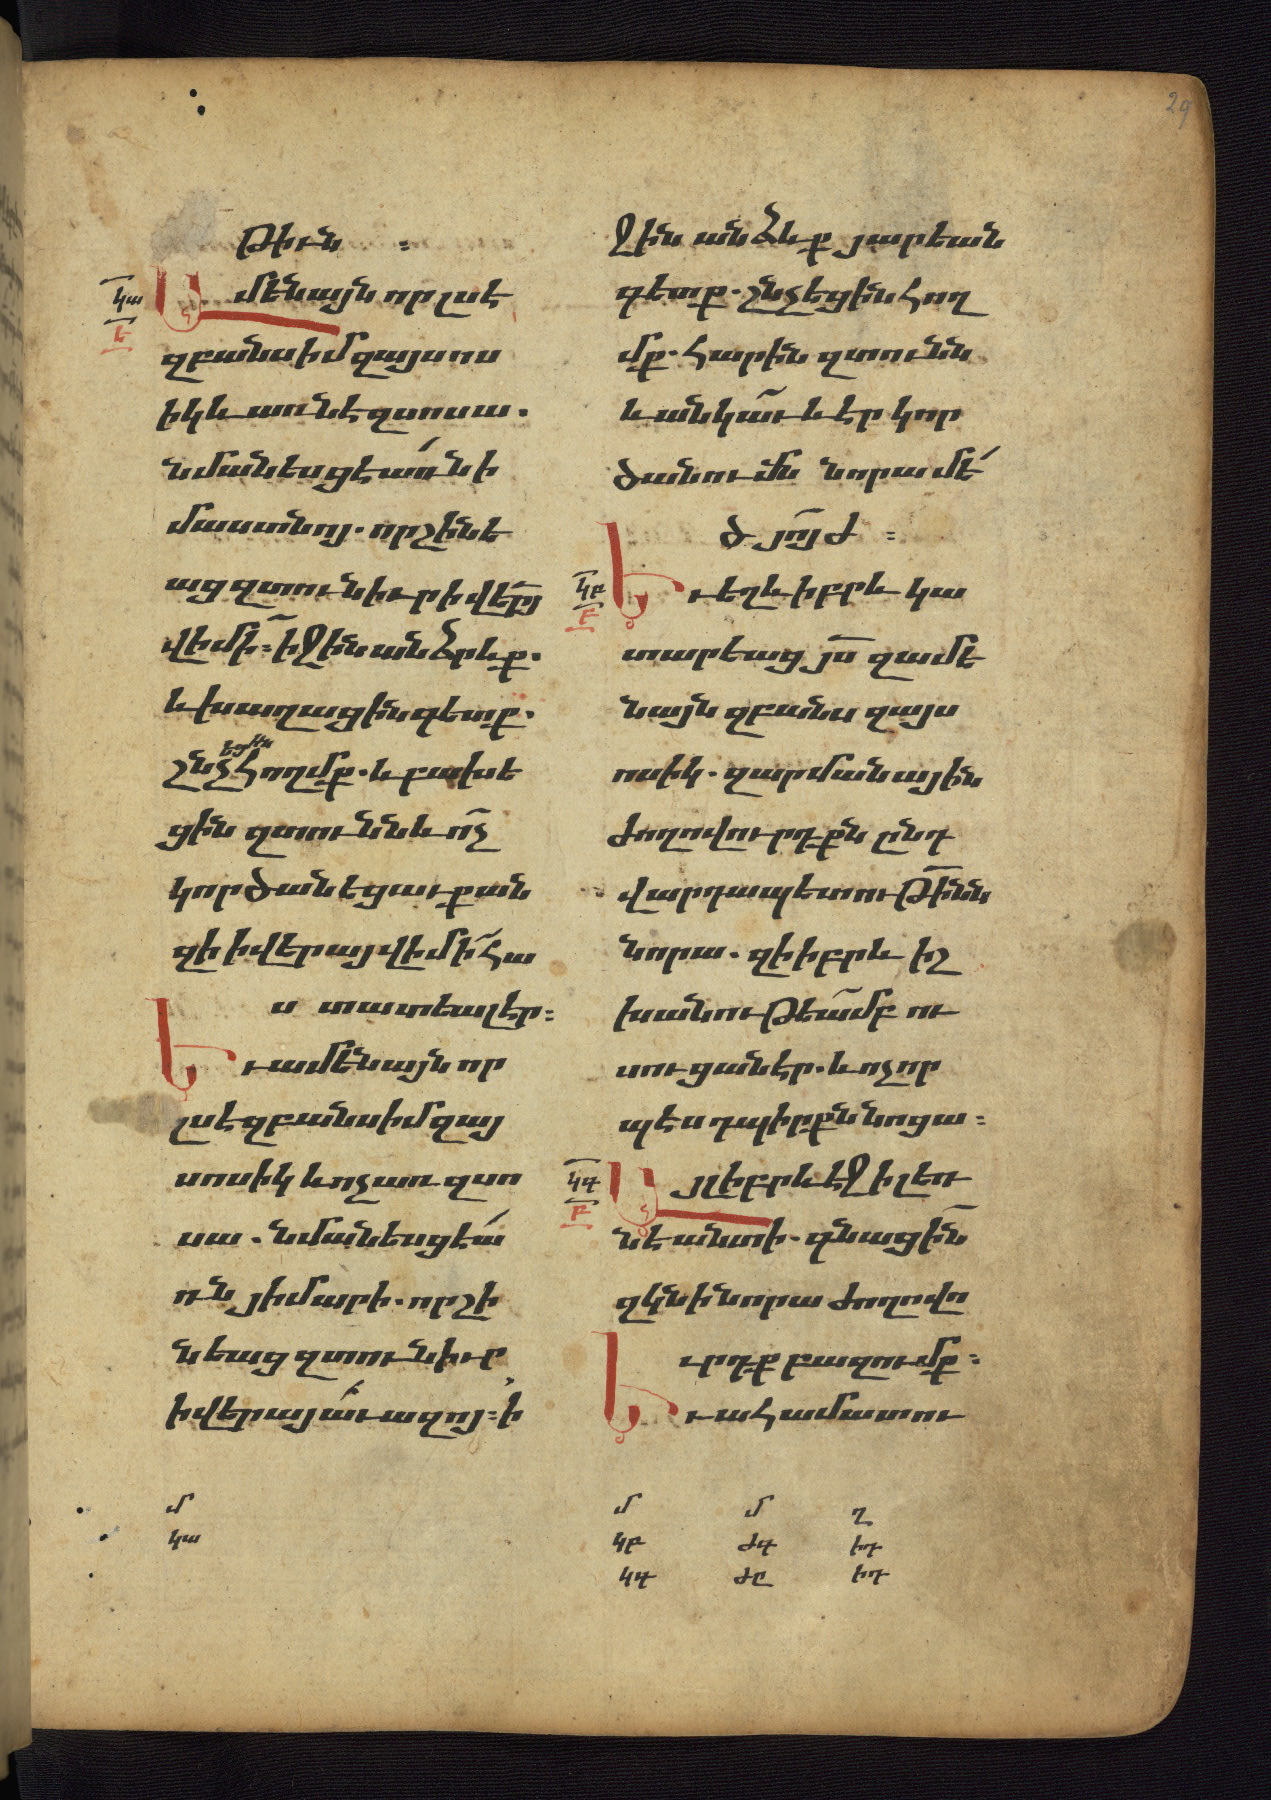 29
թիւն :
կա
Ամենայն որ լսէ
ե
զբանս իմ զայսոս
իկ և առնէ զսոսա .
նմանեսցէ առն ի
մաստնոյ . որ շինե
աց զտուն իւր ի վերայ
վիմի : իջին անձրևք .
և խաղացին գետք .
եցին
շնչ հողմք . և բախե
ցին զտունն և ոչ
կործանեցաւ քան
զի ի վերայ վիմի հա
ս տատեալ էր :
Եւ ամենայն որ
լսէ զբանս իմ զայ
սոսիկ և ոչ առ զսո
սա . նմանեսցէ ա
ռն յիմարի . որ շի
նեաց զտուն իւր
ի վերայ աւազոյ : ի
ջին անձևք յարեան
գետք . շնչեցին հող
մք . հարին զտունն
և անկաւ և էր կոր
ծանումն նորա մե
ծ յոյժ :
կբ
բ
Եւ եղև իբրև կա
տարեաց յս զամե
նայն զբանս զայս
ոսիկ . զարմանային
ժողովուրդքն ընդ
վարդապետութինն
նորա . զի իբրև իշ
խանութեամբ ու
սուցանէր . և ոչ որ
պէս դպիրքն նոցա :
կգ
բ
Այլ իբրև էջ ի լեռ
նէ անտի . գնացին
զկնի նորա ժողովո
ւրդք բազումք :
Եւ ահա մատու
մ
կա
մ մ ղ
կբ ժգ իդ
կգ ժը իդ